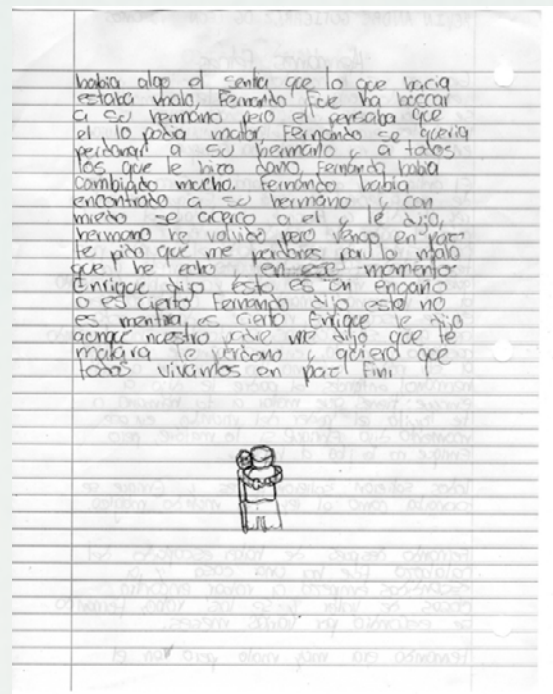 habia algo el sentia que lo que hacia
estaba malo, Fernando Fue ha boscar
a su hermano pero el pensaba que
el lo podia matar, Fernando se queria
perdonar a su hermano y a todos
los que le hizo dano, Fernando habia
cambiado mocho. Fernando habia
encontrado a su hermano y con
miedo se acerco a el y le dijo,
hermano he volvido pero vengo en paz
te pido que me perdones por lo malo
que he echo y en ese momento
Enrique dijo esto es un engano
o es cierto Fernando dijo esto no
es mentira es cierto Enrique le dijo
aunque nuestro padre me dijo que te
matara te perdono y quiero que
todos vivamos en paz Fin!